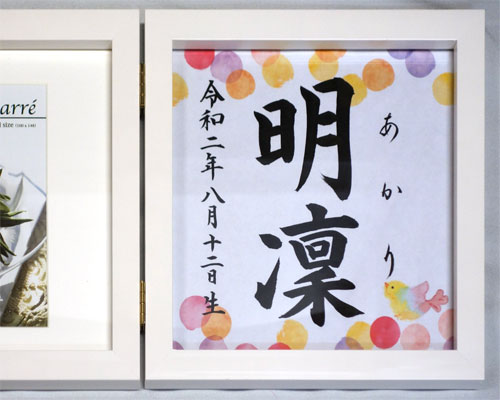 arré
l size (100 x 100)
あかり
明凛
令和二年八月十二日生